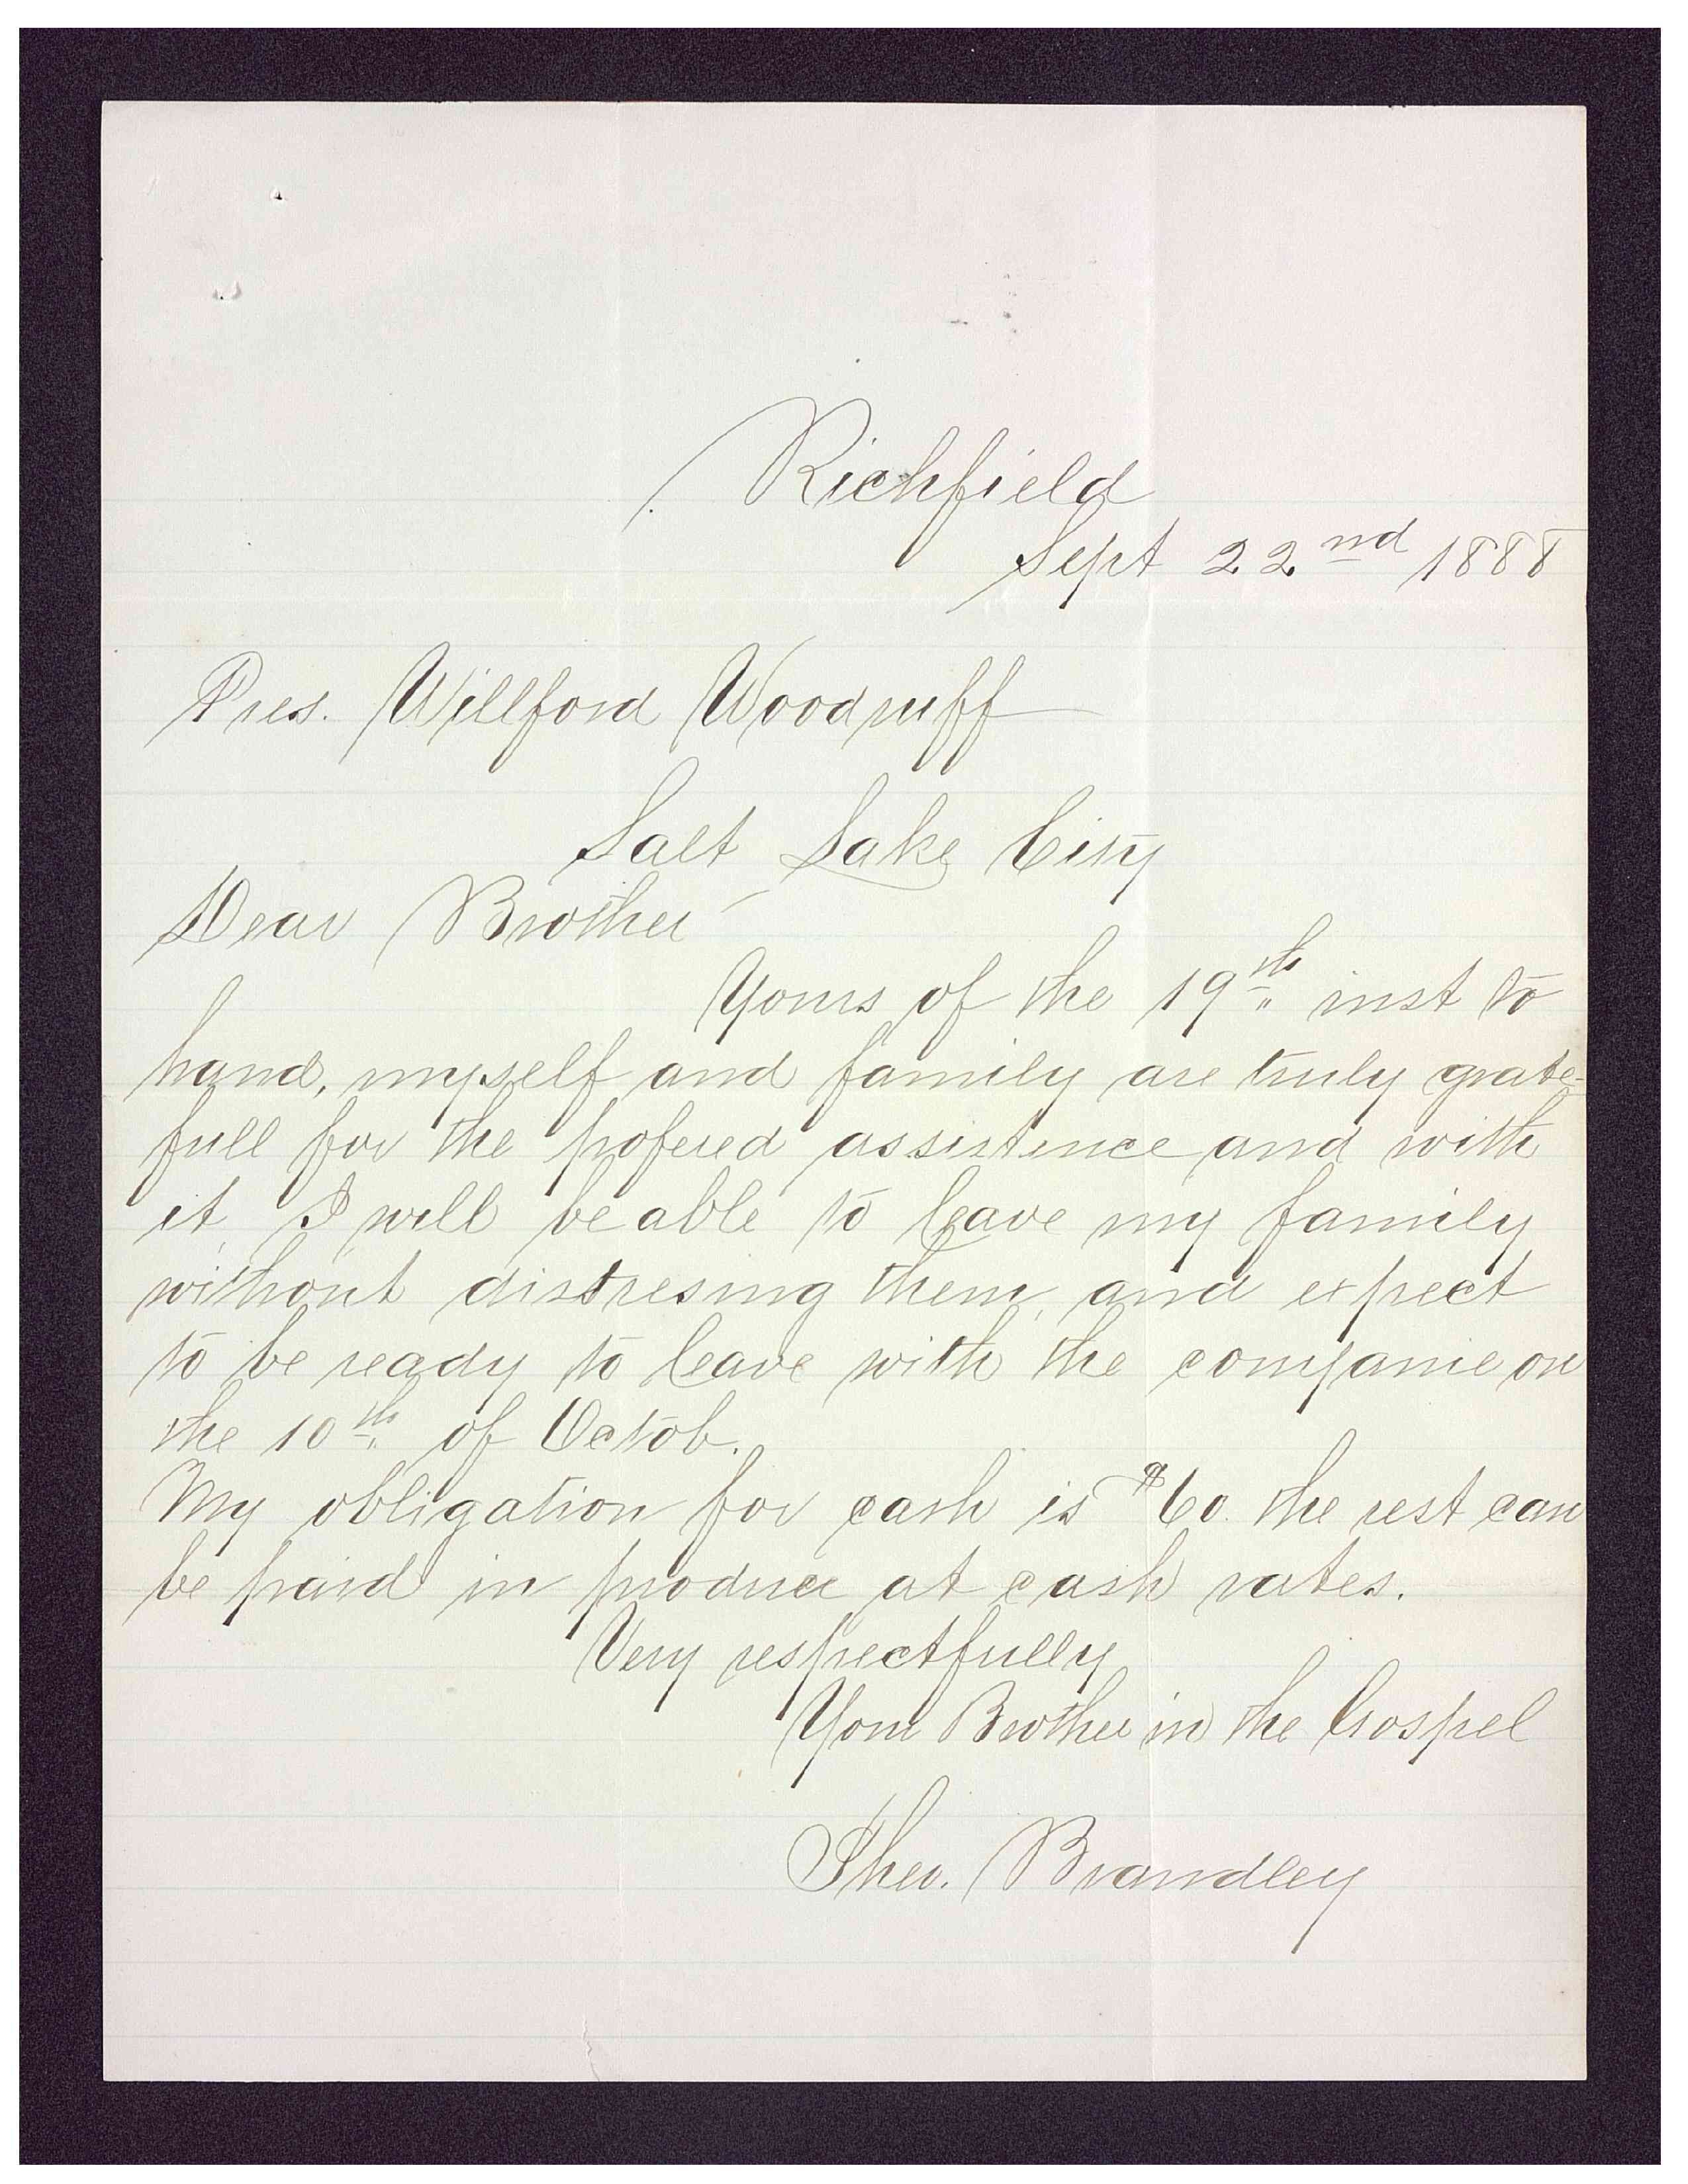 Richfield
Sept 22nd 1888
Pres. Willford Woodruff
Salt Lake City
Dear Brother
Yours of the 19th inst to
hand, myself and family are truly grate-
full for the profered assistence and with
it, I will be able to leave my family
without distresing them, and expect
to be ready to leave with the companie on
the 10th of Octob.
My obligation for cash is $60. the rest can
be paid in produce at cash rates.
Very respectfully
Your Brother in the Gospel
Theo. Brandley